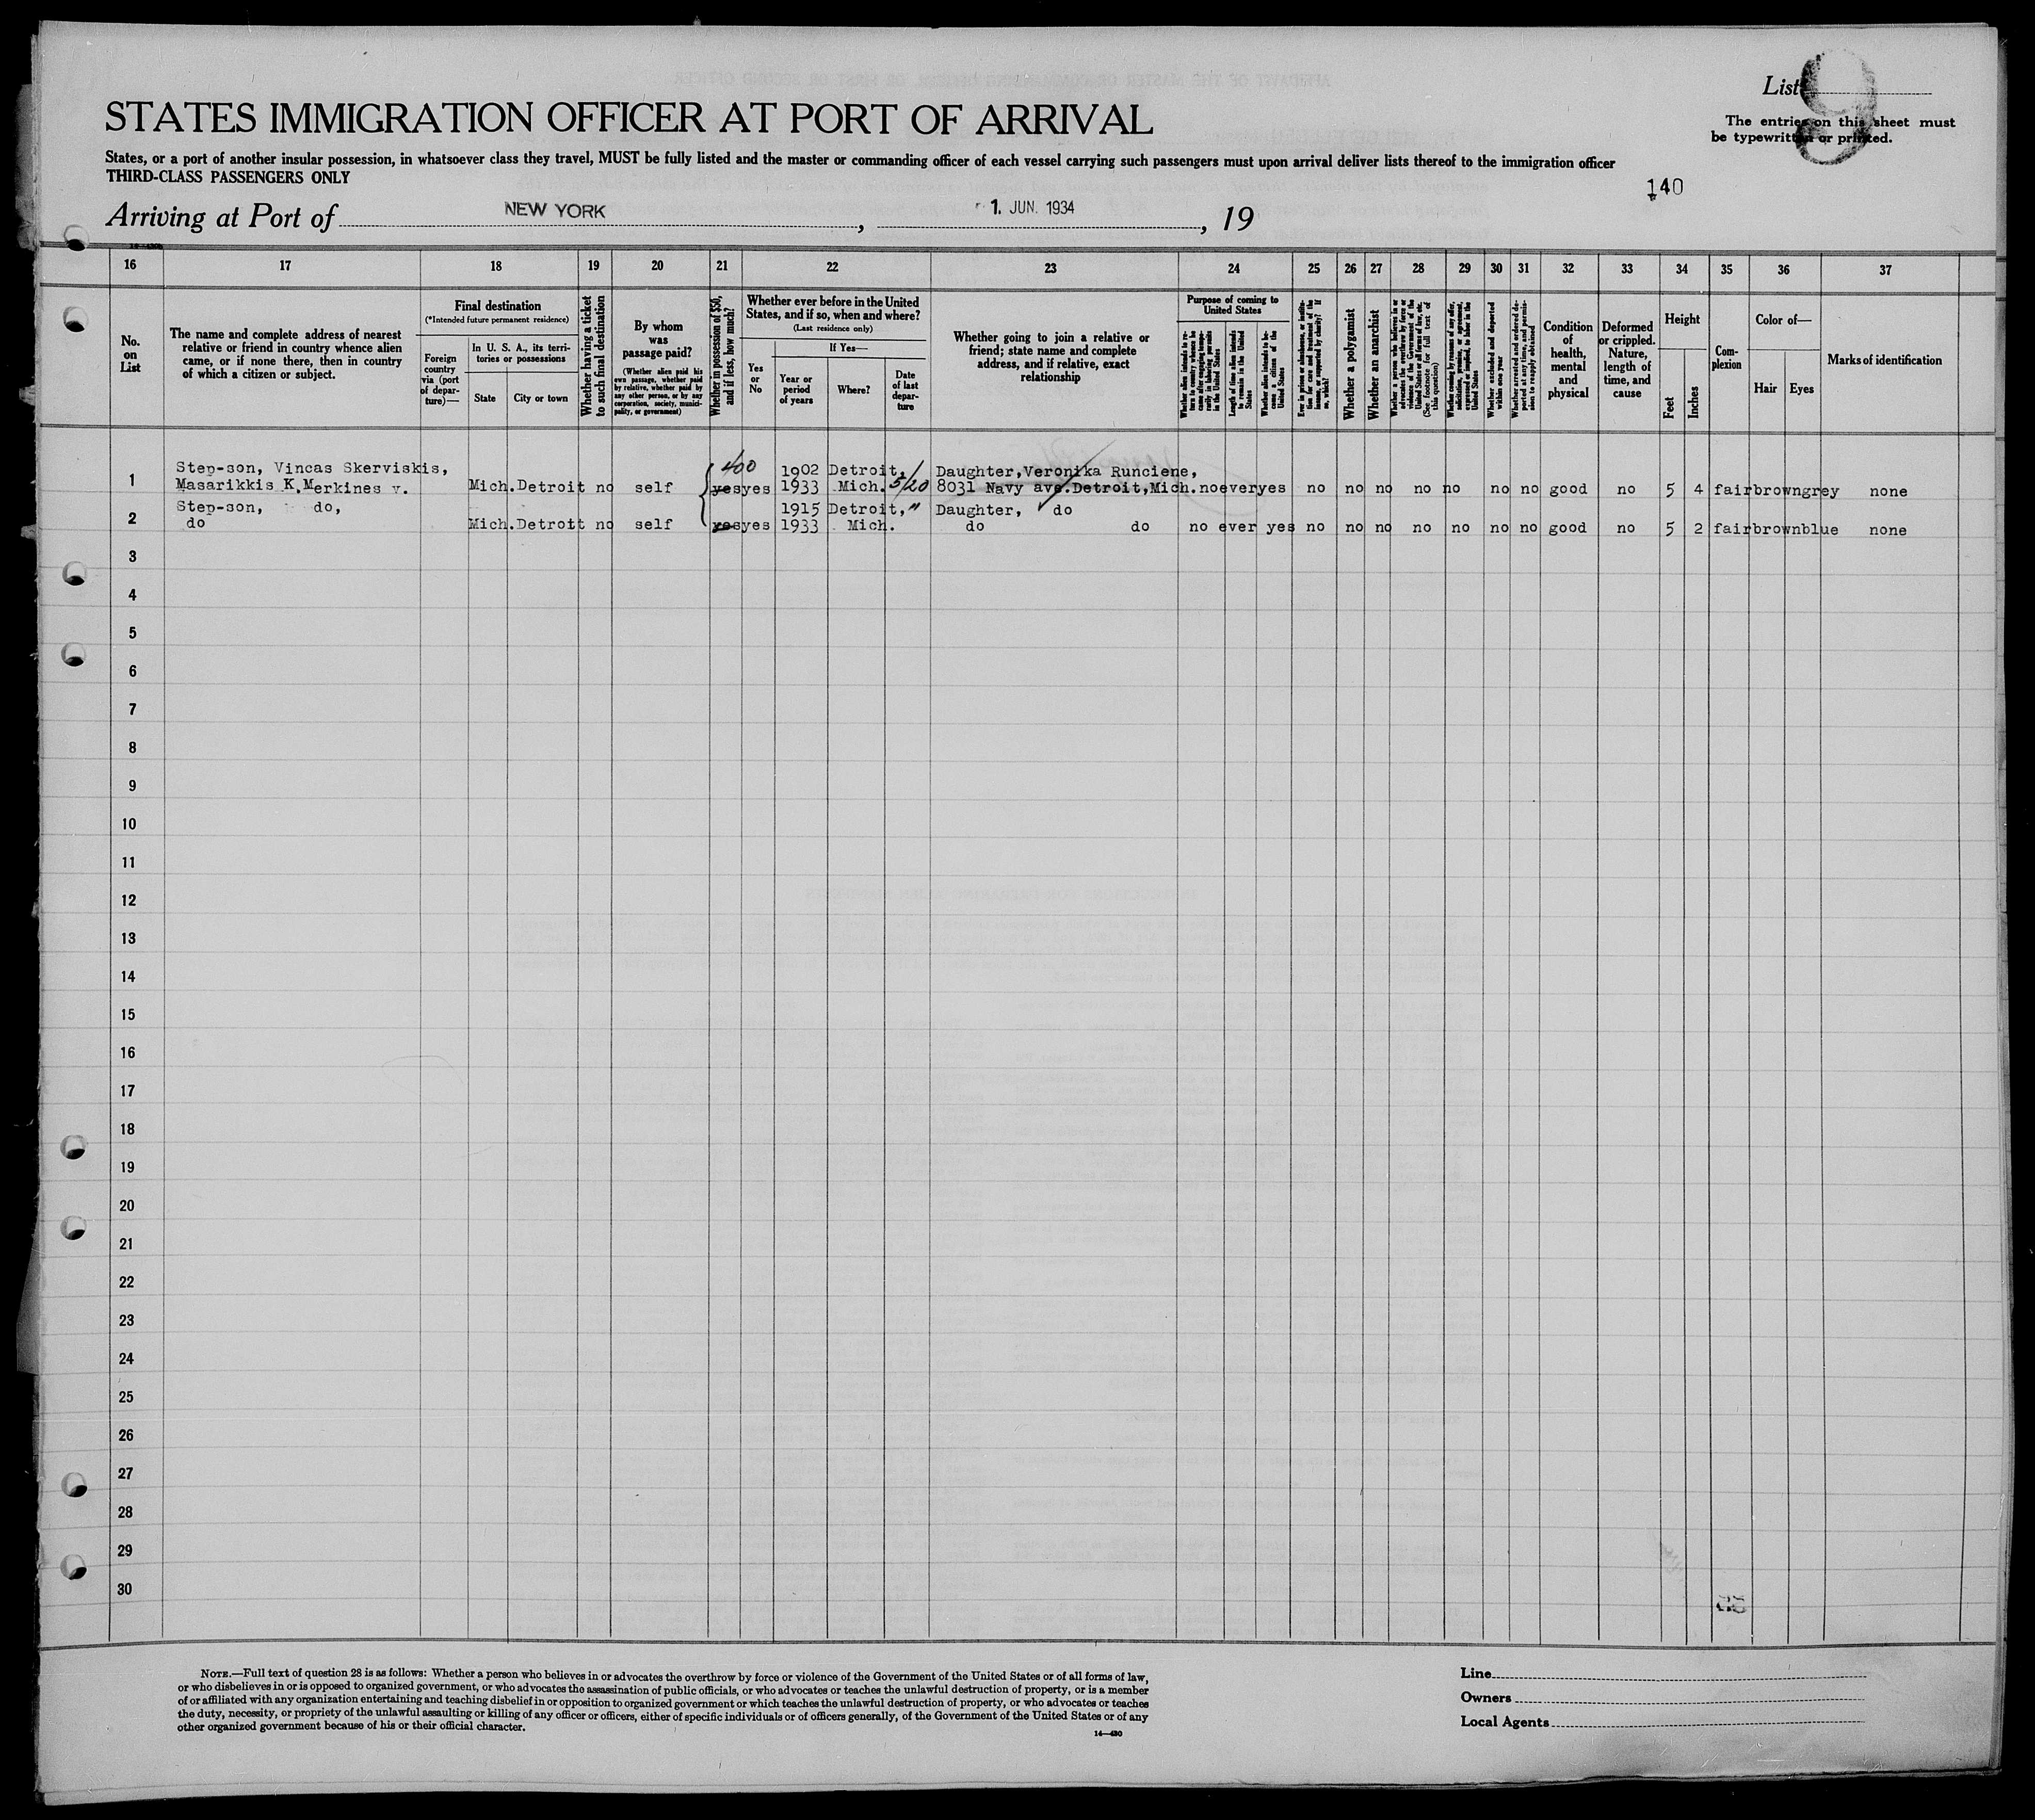 List
The entries on this sheet must
be typewritten or printed.
STATES IMMIGRATION OFFICER AT PORT OF ARRIVAL
States, or a port of another insular possession, in whatsoever class they travel, MUST be fully listed and the master or commanding officer of each vessel carrying such passengers must upon arrival deliver lists thereof to the immigration officer
THIRD-CLASS PASSENGERS ONLY
140
Arriving at Port of NEW YORK, 1. JUN. 1934, 19
16 17 18 19 20 21 22 23 24 25 26 27 28 29 30 31 32 33 34 35 36 37
No.
on
List
The name and complete address of nearest
relative or friend in country whence alien
came, or if none there, then in country
of which a citizen or subject.
Final destination
(*Intended future permanent residence)
Foreign
country
via (port
of depar-
ture)—
In U. S. A., its terri-
tories or possessions
State
City or town
Whether having a ticket
to such final destination
By whom
was
passage paid?
(Whether alien paid his
own passage, whether paid
by relative, whether paid by
any other person, or by any
corporation, society, munici-
pality, or government)
Whether in possession of $50,
and if less, how much?
Whether ever before in the United
States, and if so, when and where?
(Last residence only)
Yes
or
No
If Yes—
Year or
period
of years
Where?
Date
of last
depar-
ture
Whether going to join a relative or
friend; state name and complete
address, and if relative, exact
relationship
Purpose of coming to
United States
Whether alien intends to re-
turn to country whence he
came after engaging tempo-
rarily in laboring pursuits
in the United States
Length of time alien intends
to remain in the United
States
Whether alien intends to be-
come a citizen of the
United States
Ever in prison or almshouse, or institu-
tion for care and treatment of the
insane, or supported by charity? If
so, which?
Whether a polygamist
Whether an anarchist
Whether a person who believes in or
advocates the overthrow by force or
violence of the Government of the
United States or all forms of law, etc.
(See footnote for full text of
this question)
Whether coming by reason of any offer,
solicitation, promise, or agreement,
expressed or implied, to labor in the
United States
Whether excluded and deported
within one year
Whether arrested and ordered de-
ported at any time, and permis-
sion to reapply obtained
Condition
of
health,
mental
and
physical
Deformed
or crippled.
Nature,
length of
time, and
cause
Height
Feet
Inches
Com-
plexion
Color of—
Hair
Eyes
Marks of identification
Step-son, Vincas Skerviskis, 400 1902 Detroit, Daughter, Veronika Runciene,
1 Masarikkis K. Merkines v. Mich. Detroit no self yes yes 1933 Mich. 5/20 8031 Navy ave. Detroit, Mich. no ever yes no no no no no no no good no 5 4 fair brown grey none
Step-son, do, 1915 Detroit, " Daughter, do
2 do Mich. Detroit no self yes yes 1933 Mich. do do no ever yes no no no no no no no good no 5 2 fair brown blue none
3
4
5
6
7
8
9
10
11
12
13
14
15
16
17
18
19
20
21
22
23
24
25
26
27
28
29
30
NOTE.—Full text of question 28 is as follows: Whether a person who believes in or advocates the overthrow by force or violence of the Government of the United States or of all forms of law,
or who disbelieves in or is opposed to organized government, or who advocates the assassination of public officials, or who advocates or teaches the unlawful destruction of property, or is a member
of or affiliated with any organization entertaining and teaching disbelief in or opposition to organized government or which teaches the unlawful destruction of property, or who advocates or teaches
the duty, necessity, or propriety of the unlawful assaulting or killing of any officer or officers, either of specific individuals or of officers generally, of the Government of the United States or of any
other organized government because of his or their official character.
14—430
Line
Owners
Local Agents